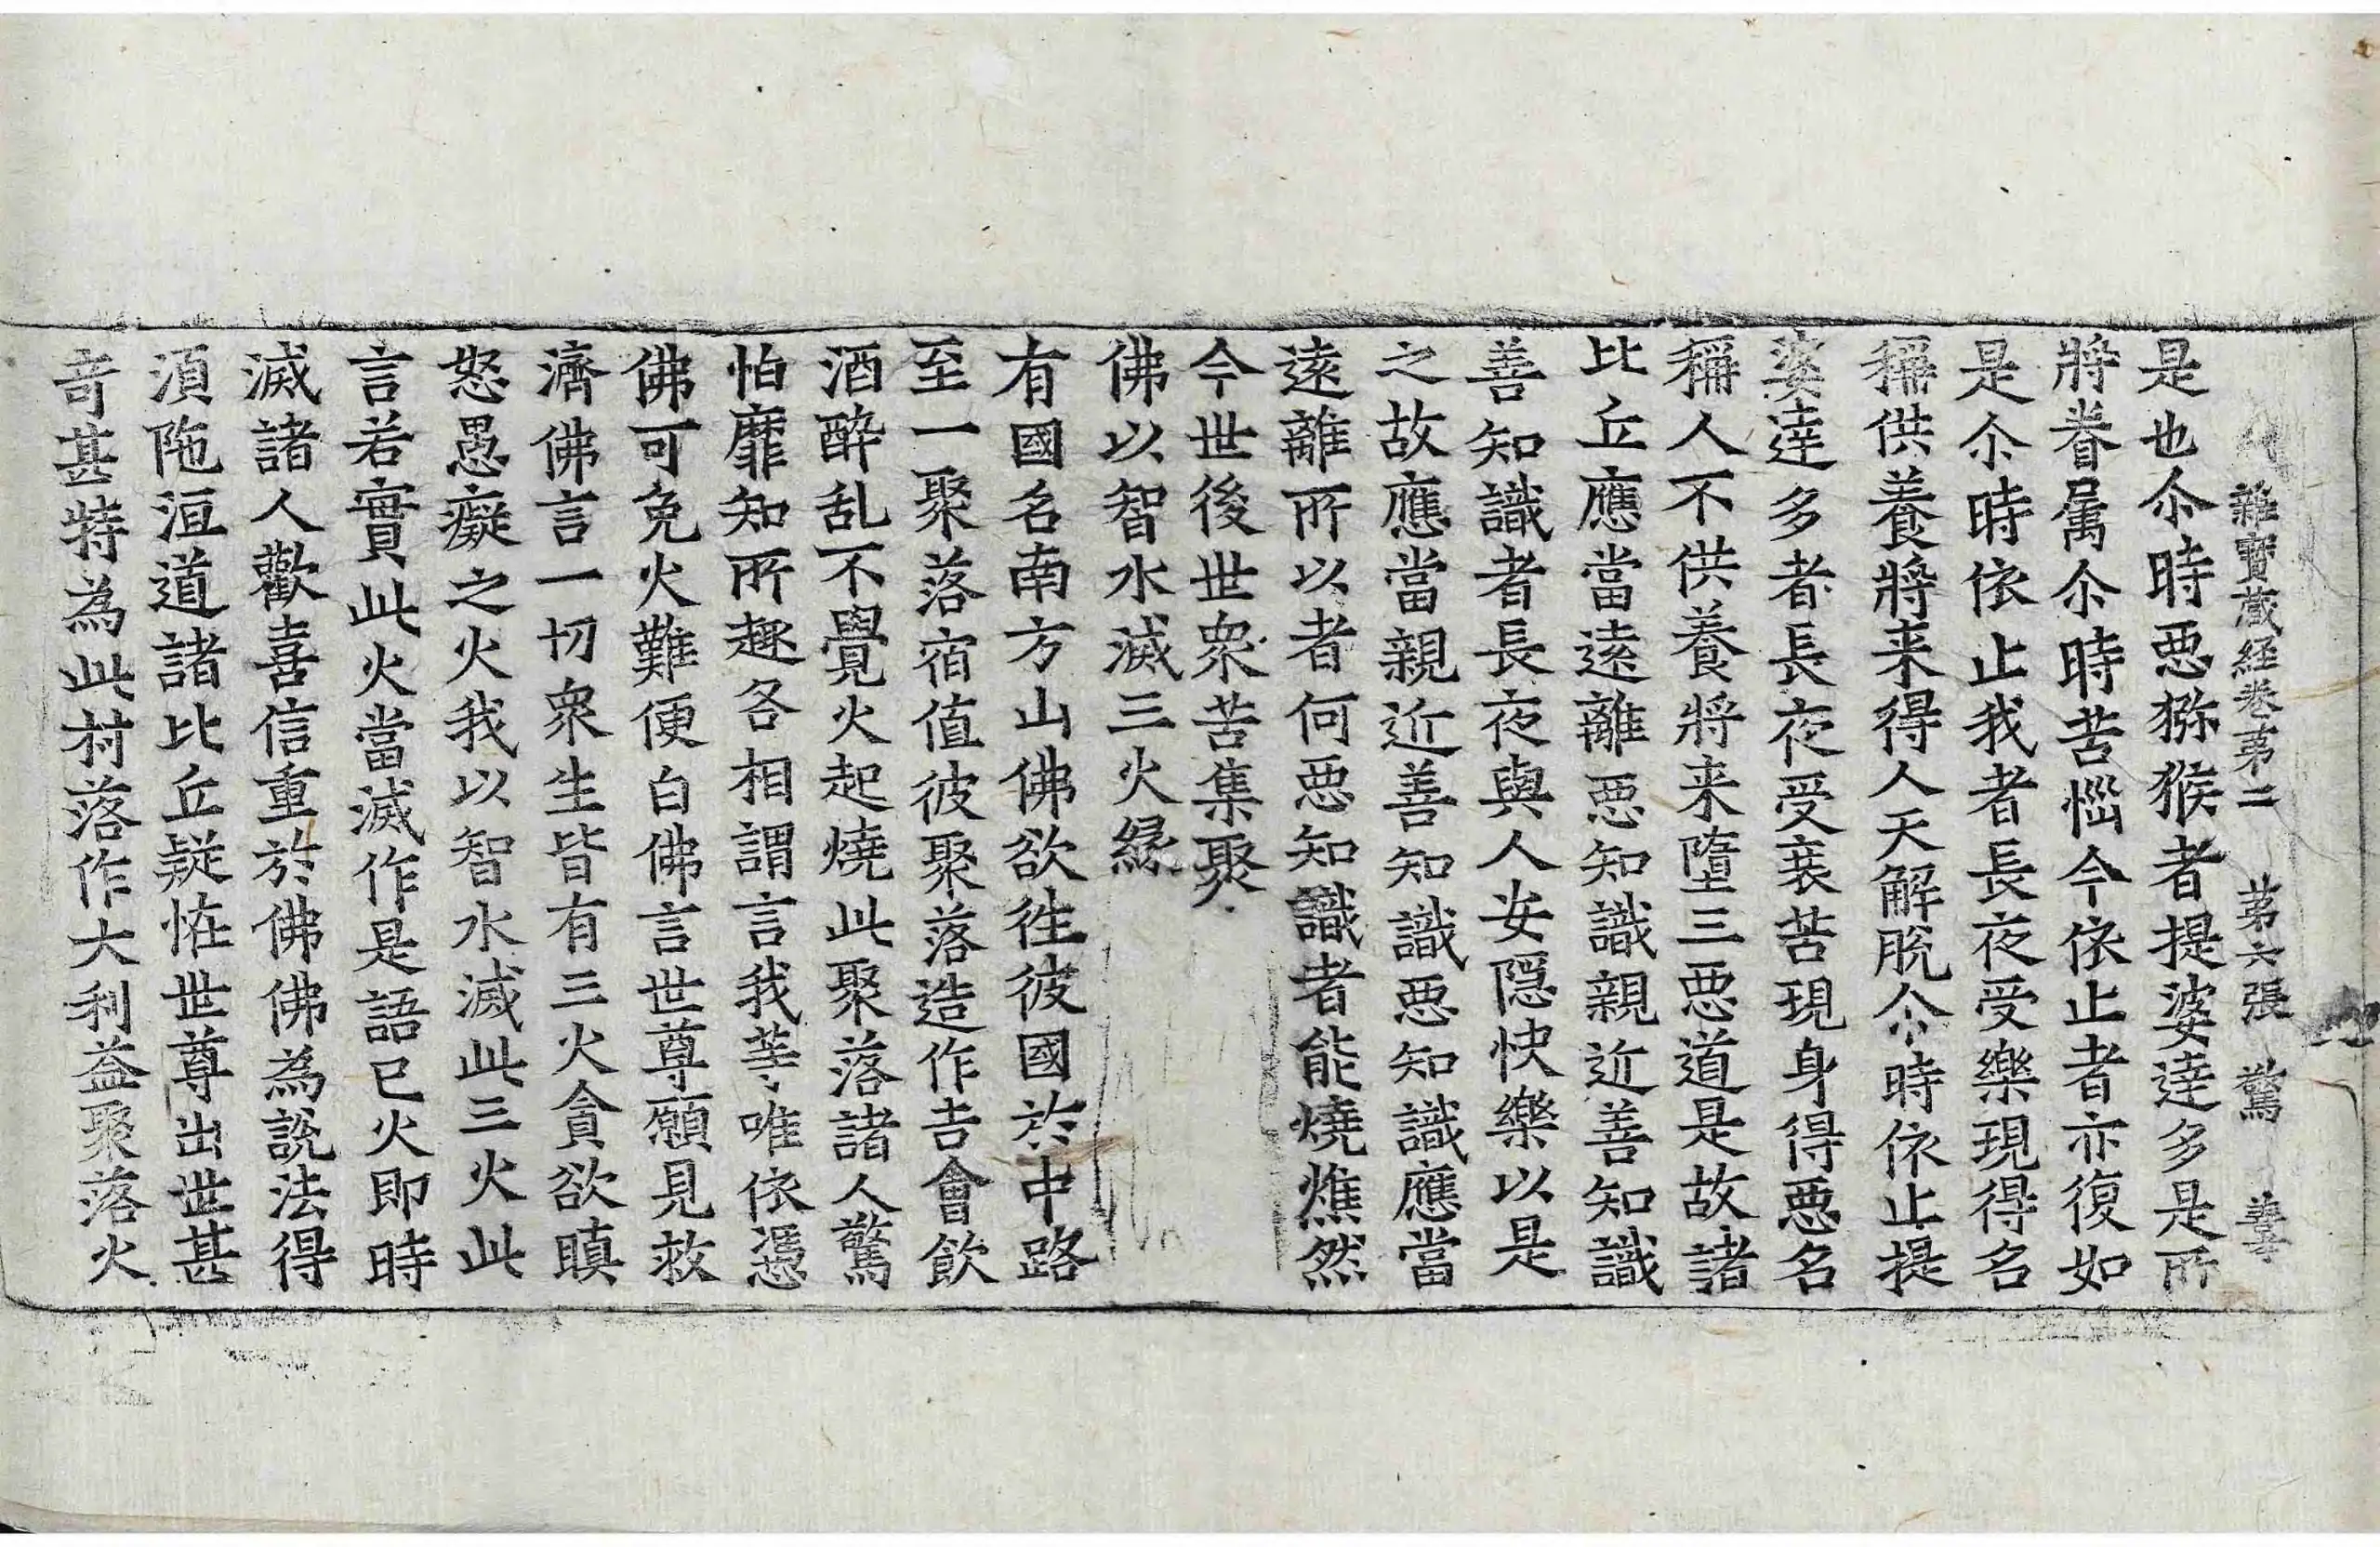 雜寶藏經卷第二 第六張 驚
是也尒時惡猕猴者提婆達多是所
將眷属尒時苦惱今依止者亦復如
是尒時依止我者長夜受樂現得名
稱供養將来得人天解脫尒時依止提
婆達多者長夜受衰苦現身得悪名
稱人不供養將来墮三悪道是故諸
比丘應當逺離悪知識親近善知識
善知識者長夜與人安隱快樂以是
之故應當親近善知識悪知識應當
逺離所以者何悪知識者能燒燋然
今世後世衆苦集聚
佛以智水滅三火緣
有國名南方山佛欲徃彼國於中路
至一聚落宿值彼聚落造作吉會飲
酒醉乱不覺火起燒此聚落諸人驚
怕靡知所趣各相謂言我等唯依憑
佛可免火難便白佛言世尊願見救
濟佛言一切衆生皆有三火貪欲瞋
怒愚癡之火我以智水滅此三火此
言若實此火當滅作是語已火即時
滅諸人歡喜信重於佛佛為說法得
湏陁洹道諸比丘疑恠世尊出世甚
奇甚特為此村落作大利益聚落火